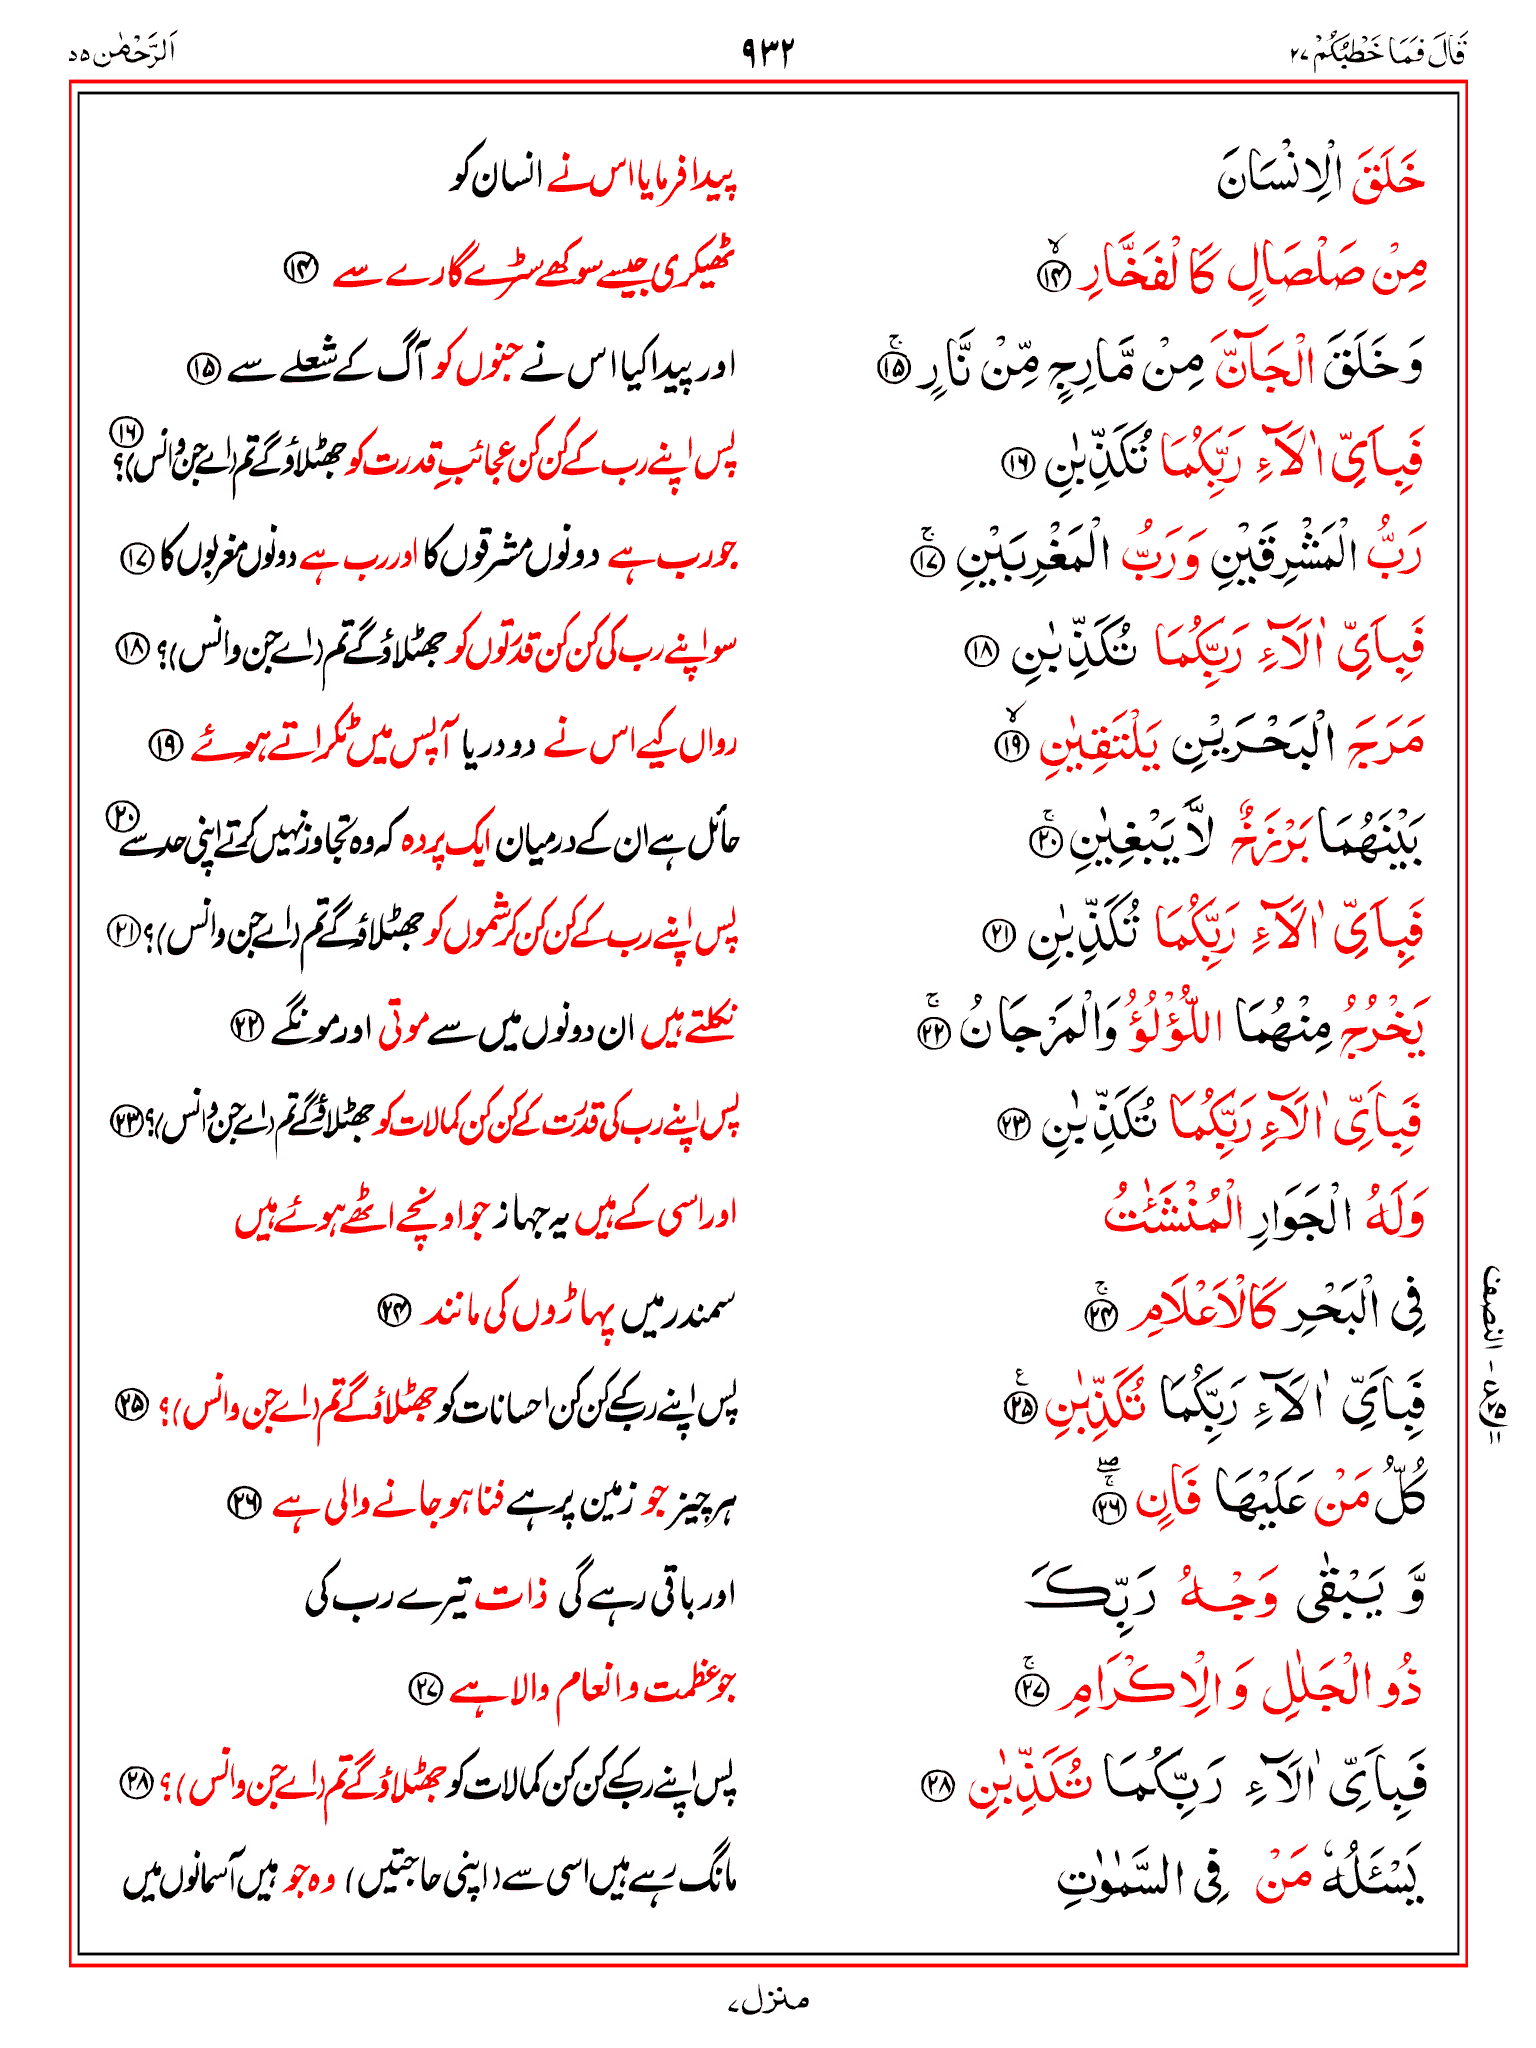 قَالَ فَمَا خَطْبُكُمْ ٢٧
٩٣٢
اَلرَّحْمٰن ٥٥
خَلَقَ الْاِنْسَانَ
پیدا فرمایا اس نے انسان کو
مِنْ صَلْصَالٍ كَالْفَخَّارِ ۙ ⑭
ٹھیکری جیسے سوکھے سڑے گارے سے ⑭
وَخَلَقَ الْجَآنَّ مِنْ مَّارِجٍ مِّنْ نَّارٍ ۚ ⑮
اور پیدا کیا اس نے جنوں کو آگ کے شعلے سے ⑮
فَبِاَيِّ اٰلَآءِ رَبِّكُمَا تُكَذِّبٰنِ ⑯
پس اپنے رب کے کن کن عجائبِ قدرت کو جھٹلاؤ گے تم (اے جن وانس)؟ ⑯
رَبُّ الْمَشْرِقَيْنِ وَرَبُّ الْمَغْرِبَيْنِ ۚ ⑰
جو رب ہے دونوں مشرقوں کا اور رب ہے دونوں مغربوں کا ⑰
فَبِاَيِّ اٰلَآءِ رَبِّكُمَا تُكَذِّبٰنِ ⑱
سو اپنے رب کی کن کن قدرتوں کو جھٹلاؤ گے تم (اے جن وانس)؟ ⑱
مَرَجَ الْبَحْرَيْنِ يَلْتَقِيٰنِ ۙ ⑲
رواں کیے اس نے دو دریا آپس میں ٹکراتے ہوئے ⑲
بَيْنَهُمَا بَرْزَخٌ لَّا يَبْغِيٰنِ ۚ ⑳
حائل ہے ان کے درمیان ایک پردہ کہ وہ تجاوز نہیں کرتے اپنی حد سے ⑳
فَبِاَيِّ اٰلَآءِ رَبِّكُمَا تُكَذِّبٰنِ ㉑
پس اپنے رب کے کن کن کرشموں کو جھٹلاؤ گے تم (اے جن وانس)؟ ㉑
يَخْرُجُ مِنْهُمَا اللُّؤْلُؤُ وَالْمَرْجَانُ ۚ ㉒
نکلتے ہیں ان دونوں میں سے موتی اور مونگے ㉒
فَبِاَيِّ اٰلَآءِ رَبِّكُمَا تُكَذِّبٰنِ ㉓
پس اپنے رب کی قدرت کے کن کن کمالات کو جھٹلاؤ گے تم (اے جن وانس)؟ ㉓
وَلَهُ الْجَوَارِ الْمُنْشَئٰتُ
اور اسی کے ہیں یہ جہاز جو اونچے اٹھے ہوئے ہیں
فِي الْبَحْرِ كَالْاَعْلَامِ ۚ ㉔
سمندر میں پہاڑوں کی مانند ㉔
فَبِاَيِّ اٰلَآءِ رَبِّكُمَا تُكَذِّبٰنِ ۧ ㉕
پس اپنے رب کے کن کن احسانات کو جھٹلاؤ گے تم (اے جن وانس)؟ ㉕
كُلُّ مَنْ عَلَيْهَا فَانٍ ۚۖ ㉖
ہر چیز جو زمین پر ہے فنا ہو جانے والی ہے ㉖
وَّيَبْقٰى وَجْهُ رَبِّكَ
اور باقی رہے گی ذات تیرے رب کی
ذُو الْجَلٰلِ وَالْاِكْرَامِ ۚ ㉗
جو عظمت و انعام والا ہے ㉗
فَبِاَيِّ اٰلَآءِ رَبِّكُمَا تُكَذِّبٰنِ ㉘
پس اپنے رب کے کن کن کمالات کو جھٹلاؤ گے تم (اے جن وانس)؟ ㉘
يَسْـَٔلُهٗ مَنْ فِي السَّمٰوٰتِ
مانگ رہے ہیں اسی سے (اپنی حاجتیں) وہ جو ہیں آسمانوں میں
النصف
منزل ٧